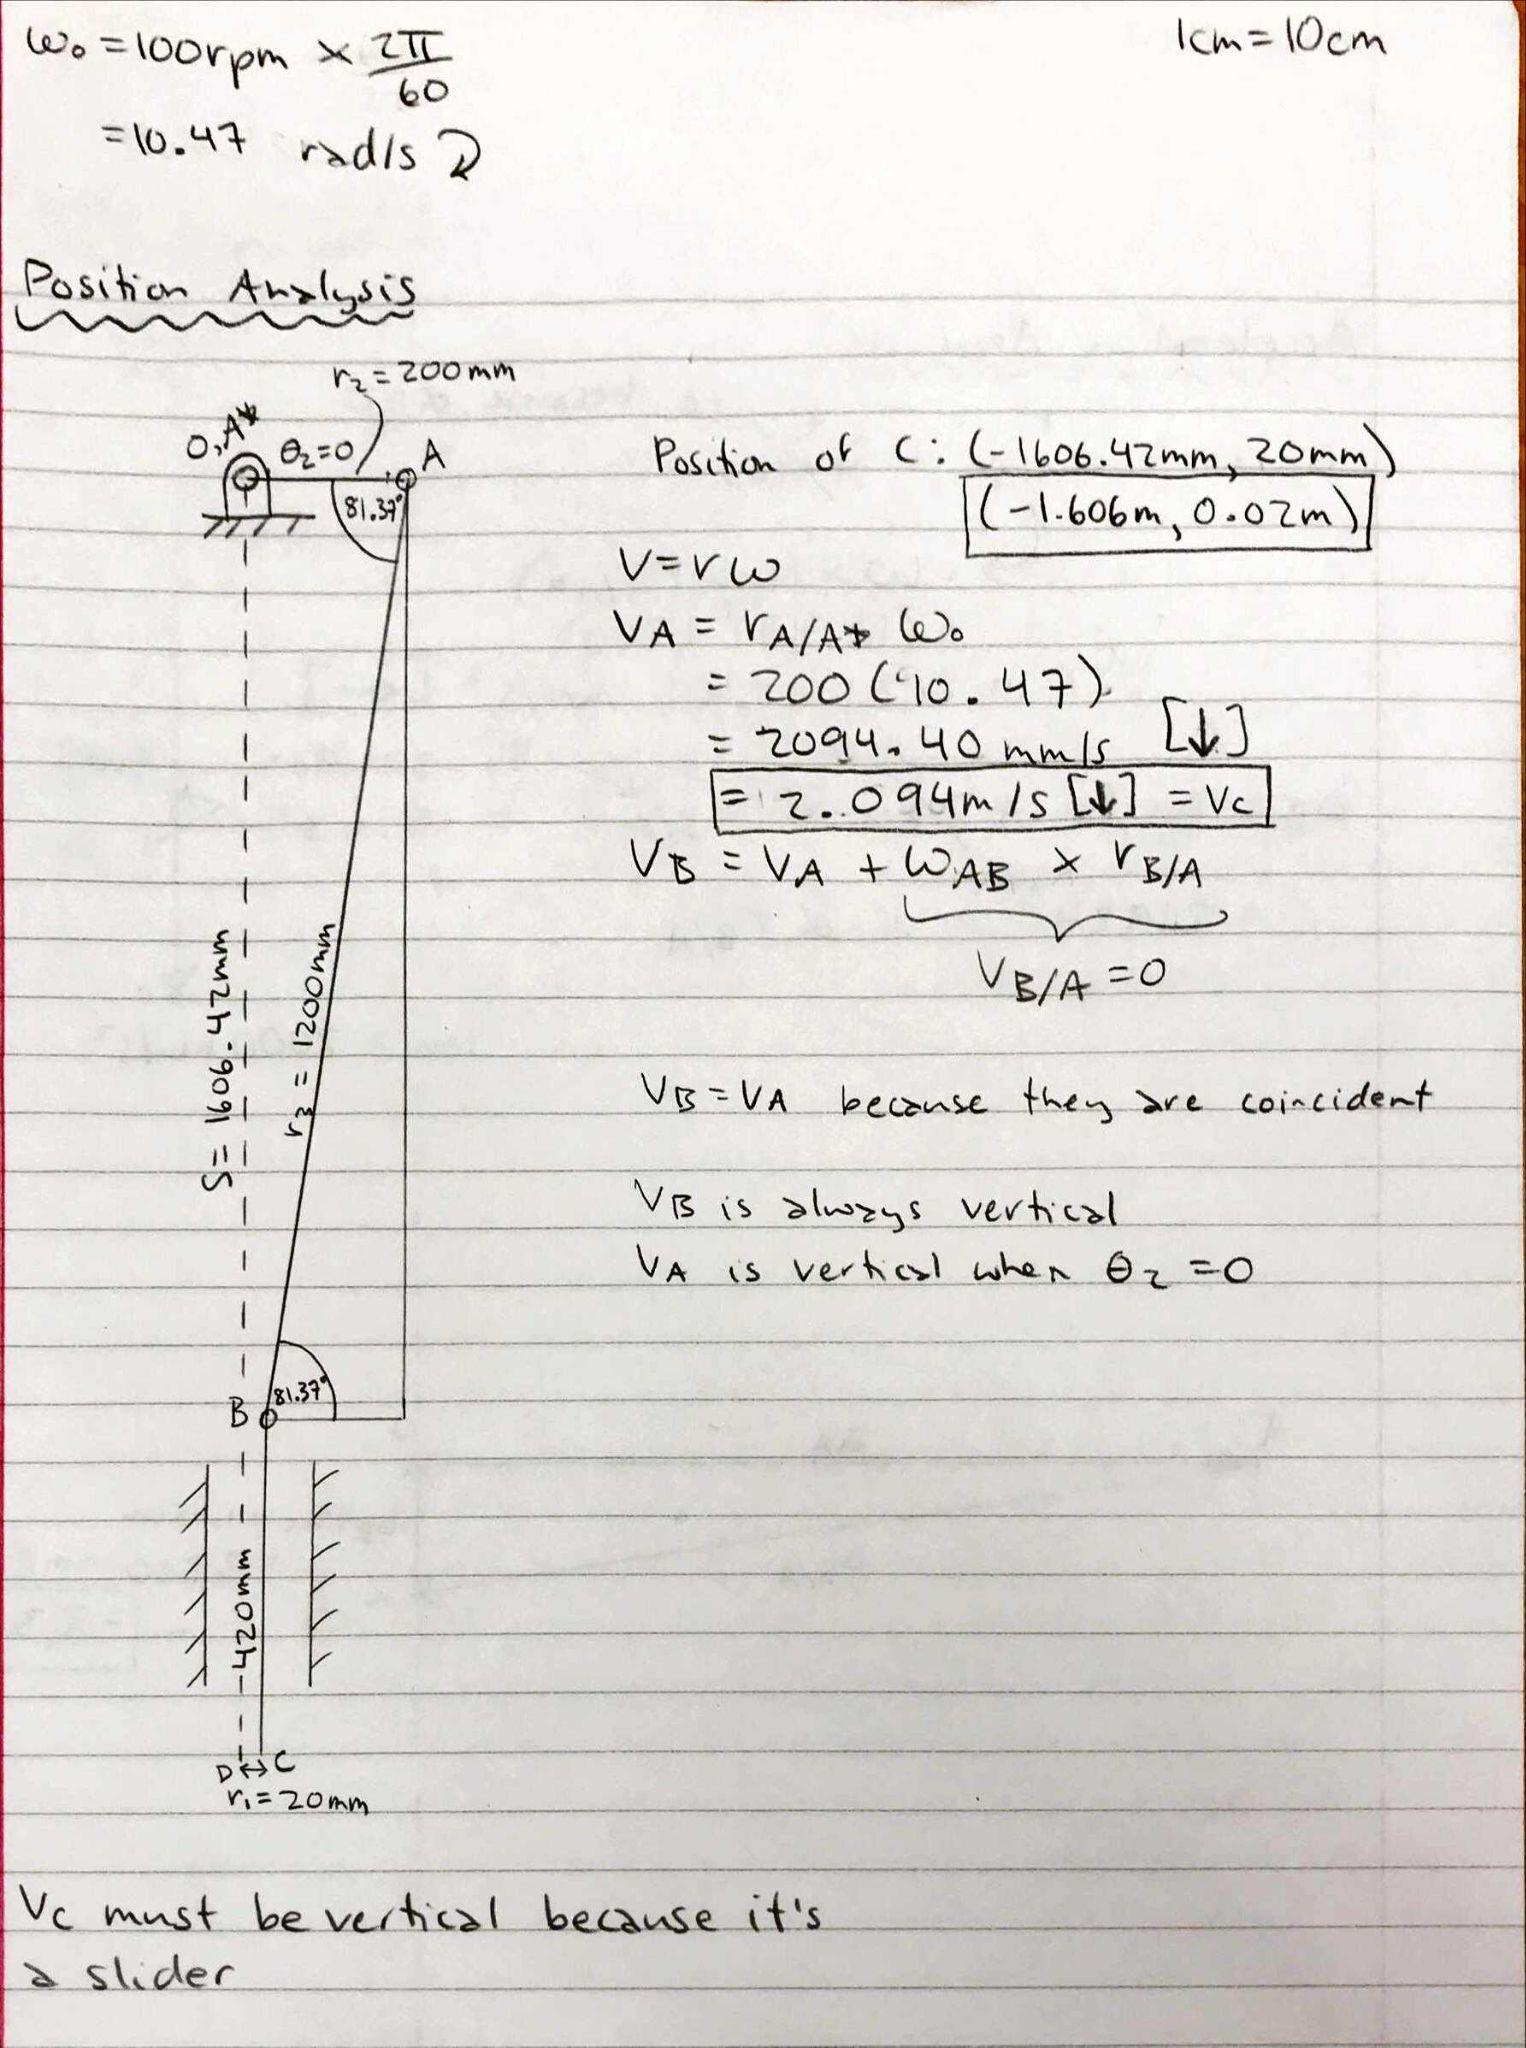 ω₀ = 100rpm × 2π/60
= 10.47 rad/s ↻
1cm = 10cm
Position Analysis
r₂ = 200mm
O, A*
θ₂=0
A
81.37°
S = 1606.42mm
r₃ = 1200mm
B
81.37°
420mm
D ↔ C
r₁ = 20mm
Position of C: (-1606.42mm, 20mm)
(-1.606m, 0.02m)
V = rω
VA = rA/A* ω₀
= 200 (10.47)
= 2094.40 mm/s [↓]
= 2.094m/s [↓] = Vc
VB = VA + ωAB × rB/A
VB/A = 0
VB = VA because they are coincident
VB is always vertical
VA is vertical when θ₂ = 0
Vc must be vertical because it's
a slider